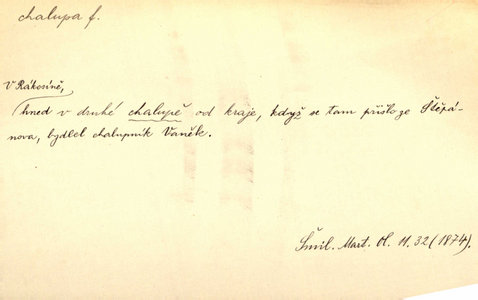 chalupa f.
V Rákosíně,
hned v druhé chalupě od kraje, když se tam přišlo ze Štěpá-
nova, bydlel chalupník Vaněk.
Šmil. Mart. Ol. 11. 32 (1874).